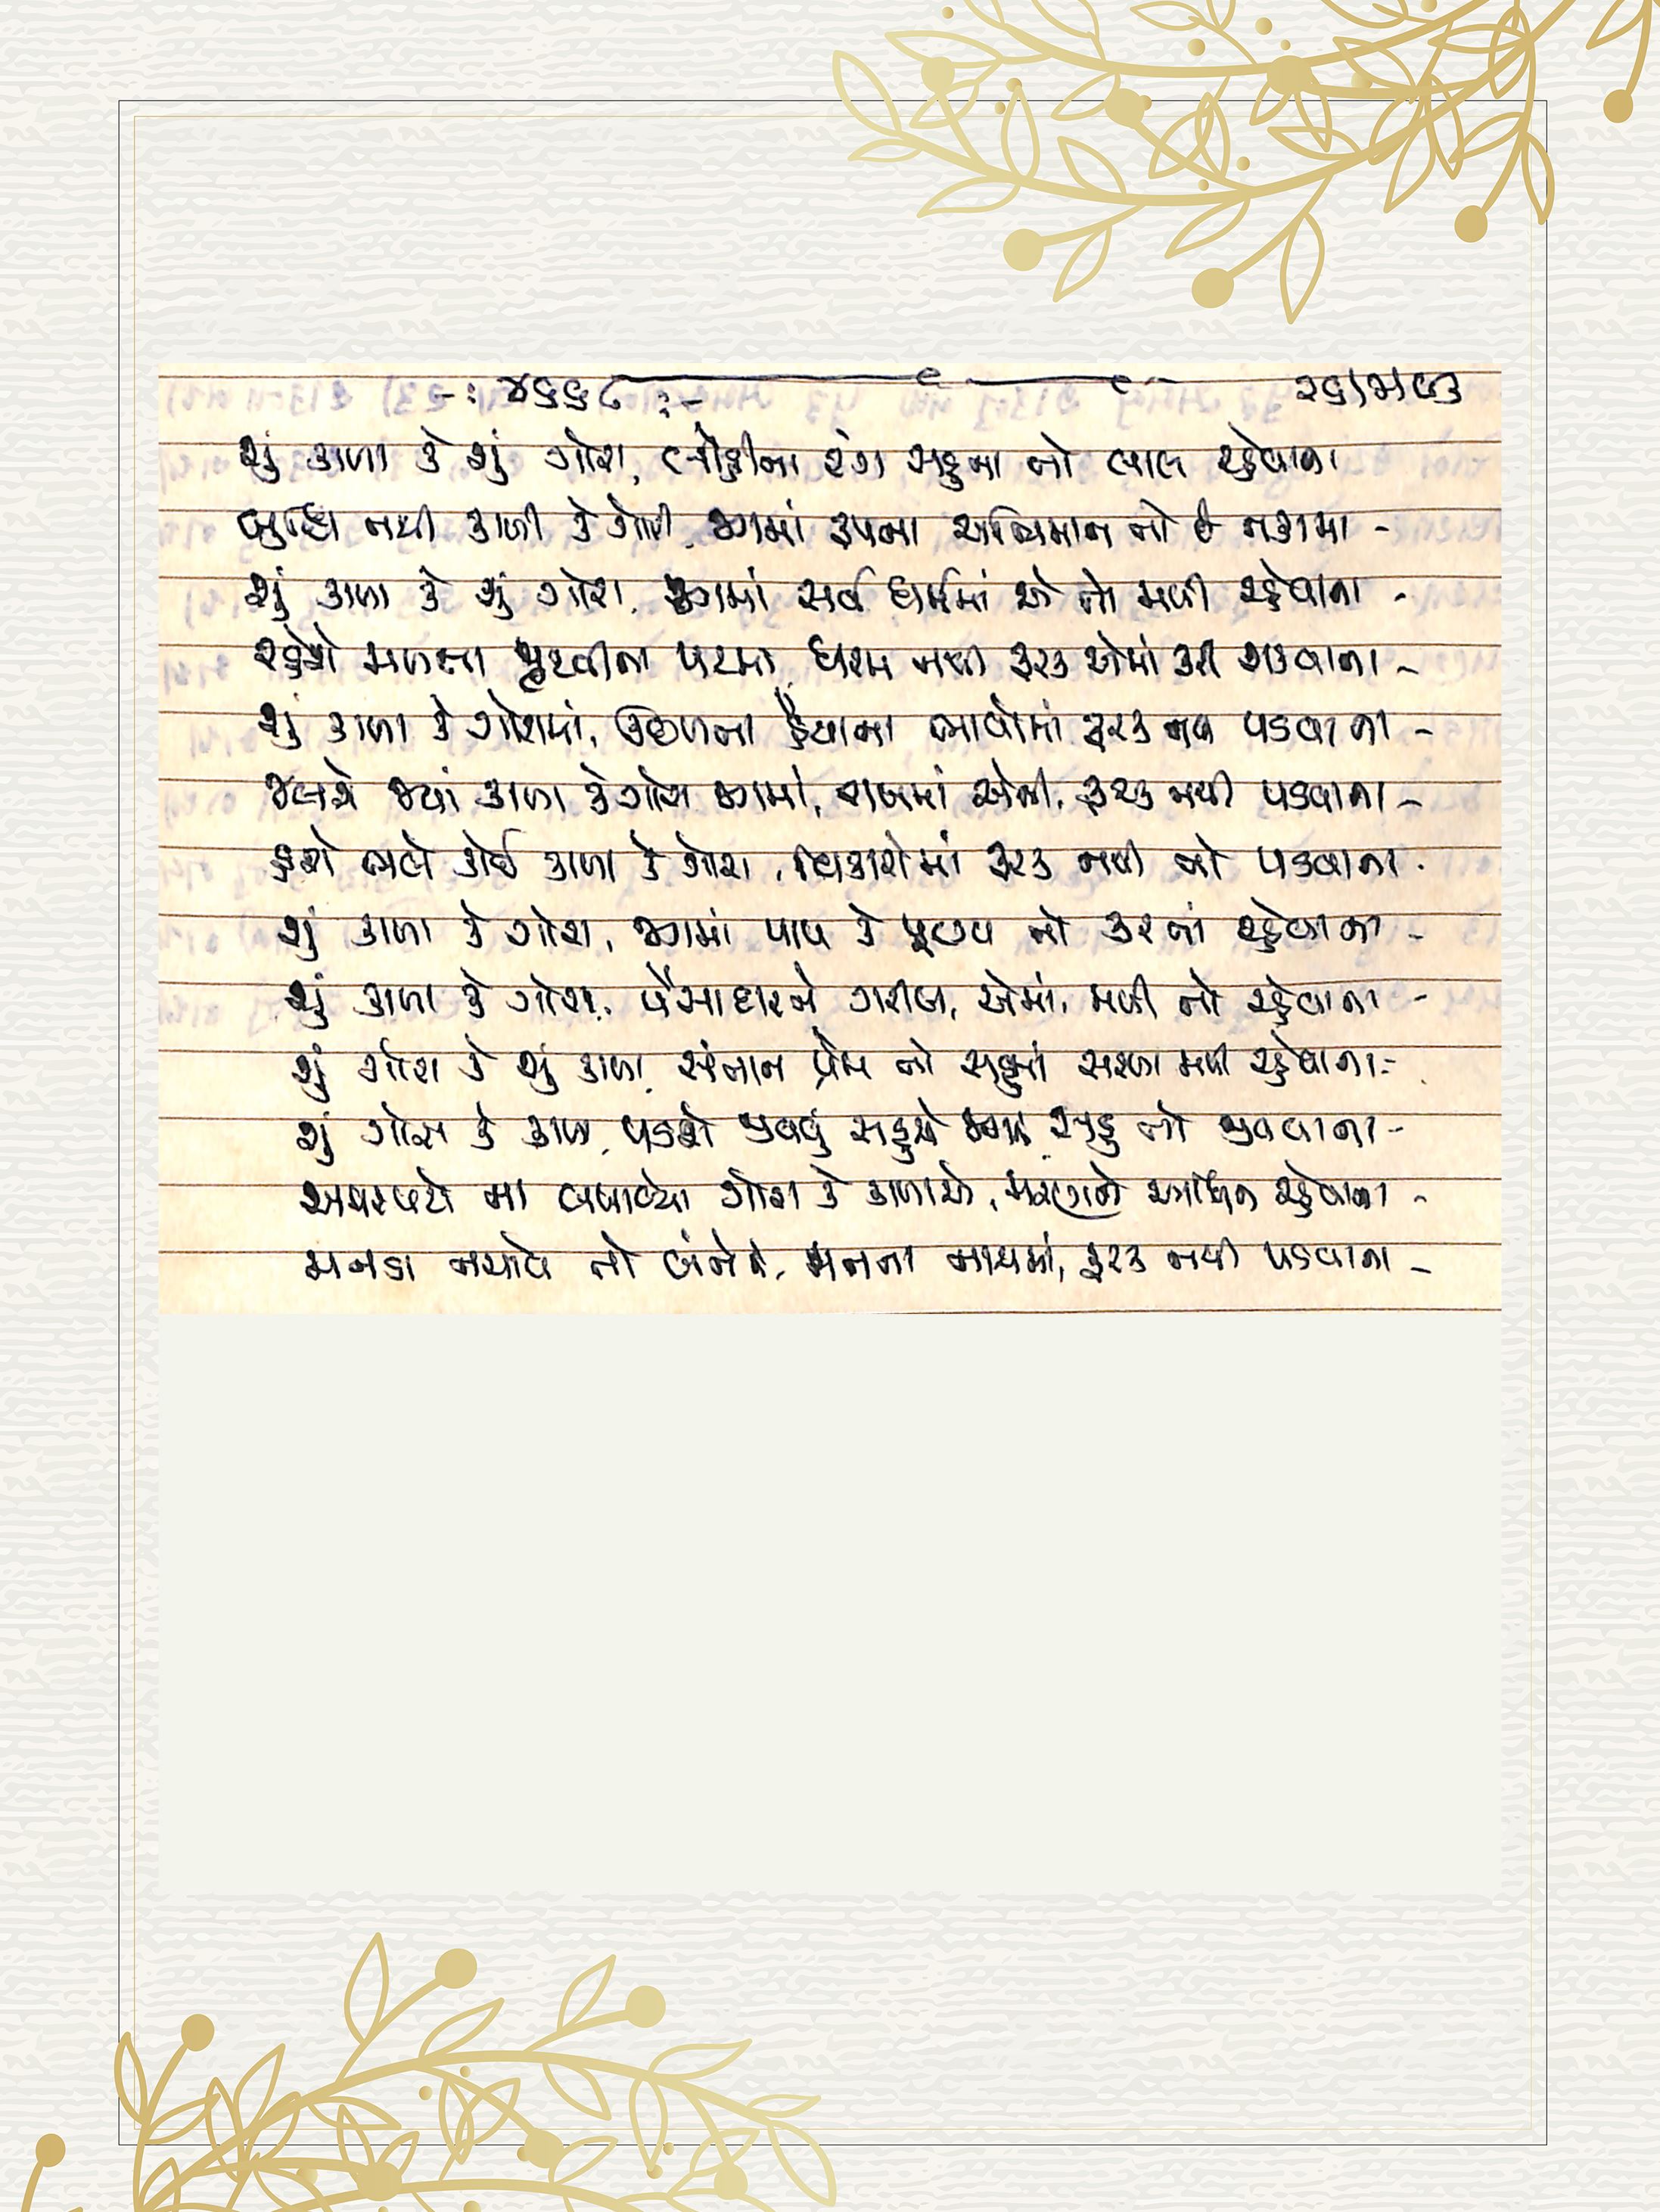 -: ૪૬૬૮ :-
શું કાળા કે શું ગોરા, લોહીના રંગ સહુના તો લાલ રહેવાના
બુદ્ધિ નથી કાળી કે ગોરી, જગમાં રૂપના અભિમાન તો છે નકામા -
શું કાળા કે શું ગોરા, જગમાં સર્વ ધર્મમાં એ તો મળી રહેવાના -
રહેશે મળતા પૃથ્વીના પટમાં, ધરમ નથી ફરક એમાં કરી શકવાના -
શું કાળા કે ગોરામાં, ઉછળતા હૈયાના ભાવોમાં ફરક નવ પડવાના -
જલશે જ્યાં કાળા કે ગોરા જગમાં, રાખમાં એની, ફરક નથી પડવાના -
હશે ભલે કોઈ કાળા કે ગોરા, વિકારોમાં ફરક નથી તો પડવાના.
શું કાળા કે ગોરા, જગમાં પાપ કે પૂણ્ય તો કરતાં રહેવાના -
શું કાળા કે ગોરા, પૈસાદાર ને ગરીબ, એમાં, મળી તો રહેવાના -
શું ગોરા કે શું કાળા, સંતાન પ્રેમ તો સહુમાં સરખા મળી રહેવાના -
શું ગોરા કે કાળા, પડશે જીવવું સહુએ સહુ તો જીવવાના -
મા બનાવ્યા ગોરા કે કાળાએ, મરણને આધિન રહેવાના -
મનડા નચાવે તો બંનેને, મનના નાચમાં, ફરક નથી પડવાના -